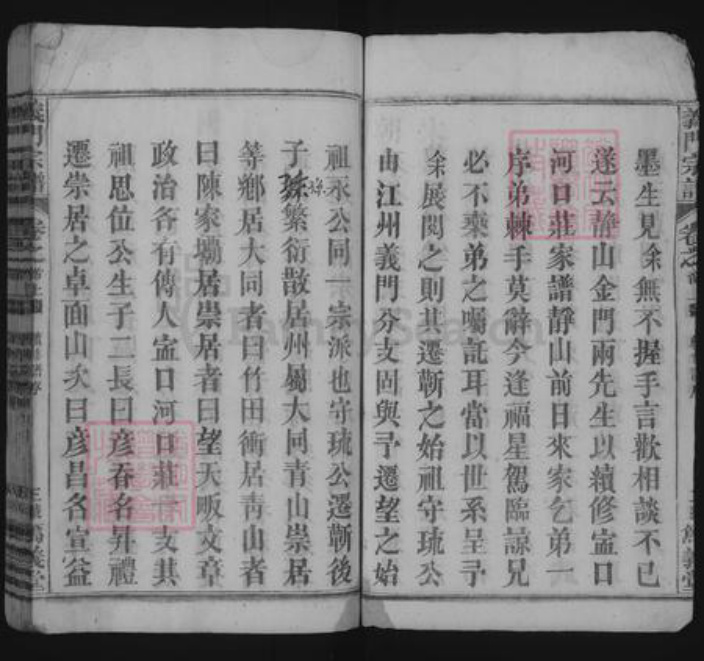 墨生見余無不握手言歡相談不已
遂云靜山金門兩先生以續修宻口
河口莊家譜靜山前日來家乞弟一
序弟棘手莫辭今逢福星駕臨諒兄
必不棄弟之囑託耳當以世系呈予
余展閱之則其遷蘄之始祖守琉公
由江州義門分支固與予遷望之始
祖永公同一宗派也守琉公遷蘄後
子孫繁衍散居州屬大同青山崇居
等鄉居大同者曰竹田衝居靑山者
曰陳家壩居崇居者曰望天畈文章
政治各有傳人宻口河口莊一支其
祖思位公生子二長曰彥春名昇禮
遷崇居之卓面山次曰彥昌名宣益
義門宗譜
卷之
篤義堂
FamilySearch